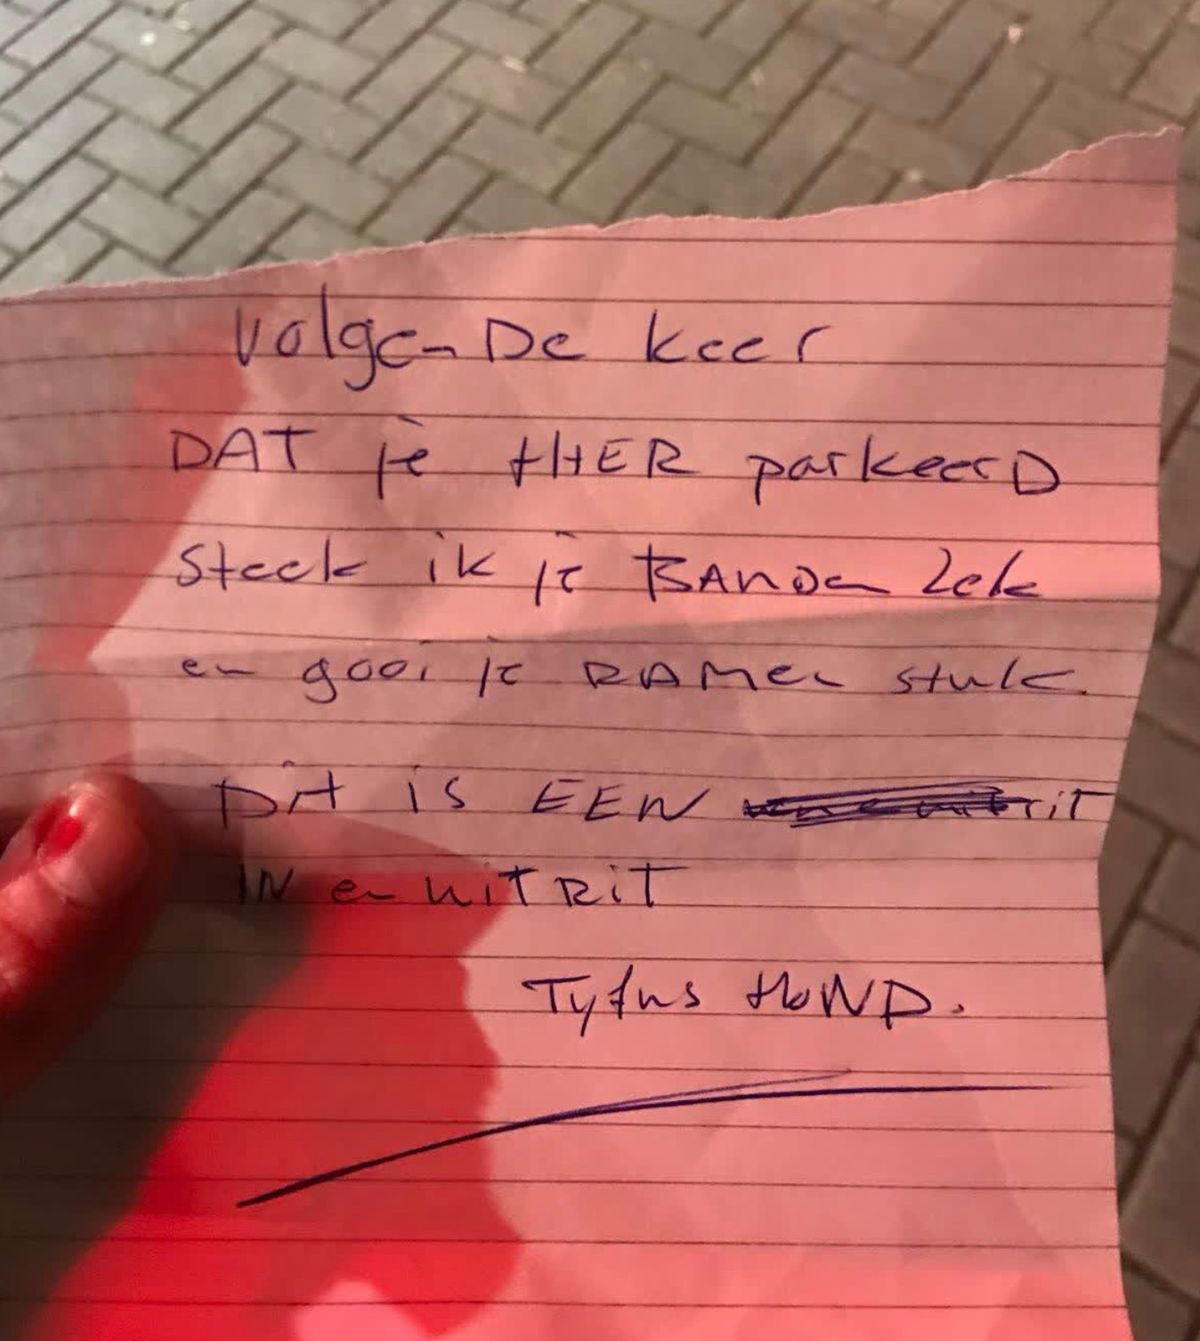 Volgende keer
DAT je HIER parkeerD
Steek ik je BANDen lek
en gooi je RAMen stuk.
Dit is EEN rit
IN en uitRit
Tyfus HOND.